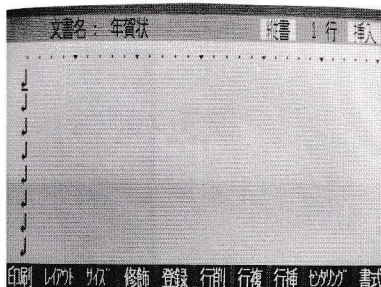 文書名：年賀状 縦書 1行 挿入
印刷 レイアウト サイズ 修飾 登録 行削 行複 行挿 センタリング 書式